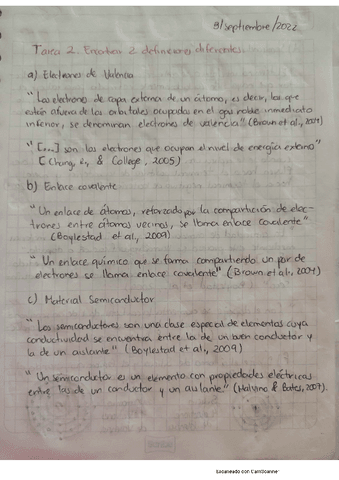 8/septiembre/2022
Tarea 2. Encontrar 2 definiciones diferentes.
a) Electrones de Valencia
"Los electrones de capa externa de un átomo, es decir, los que
están afuera de los orbitales ocupados en el gas noble inmediato
inferior, se denominan electrones de valencia" (Brown et al., 2004)
"[...] son los electrones que ocupan el nivel de energía externo"
(Chang, & College, 2005)
b) Enlace covalente
"Un enlace de átomos, reforzado por la compartición de elec-
trones entre átomos vecinos, se llama enlace covalente"
(Boylestad et al., 2009)
"Un enlace químico que se forma compartiendo un par de
electrones se llama enlace covalente" (Brown et al., 2004)
c) Material Semiconductor
"Los semiconductores son una clase especial de elementos cuya
conductividad se encuentra entre la de un buen conductor y
la de un aislante" (Boylestad et al., 2009)
"Un semiconductor es un elemento con propiedades eléctricas
entre las de un conductor y un aislante" (Malvino & Bates, 2007).
Escaneado con CamScanner